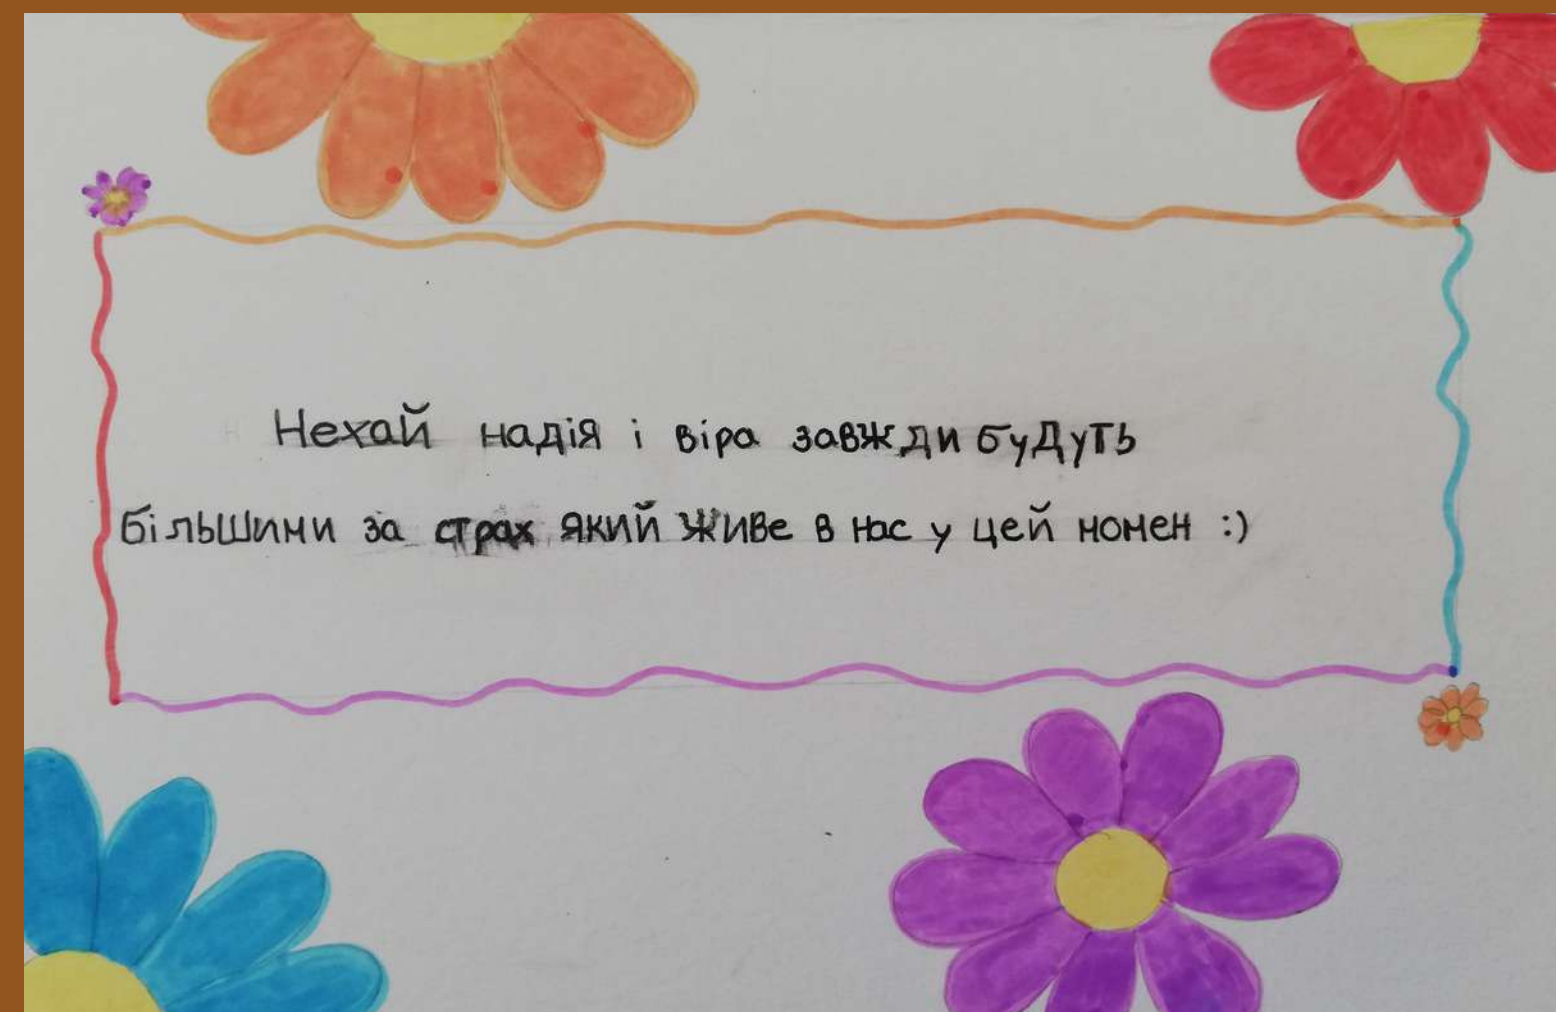 Нехай надія і віра завжди будуть
більшими за страх який живе в нас у цей момен :)